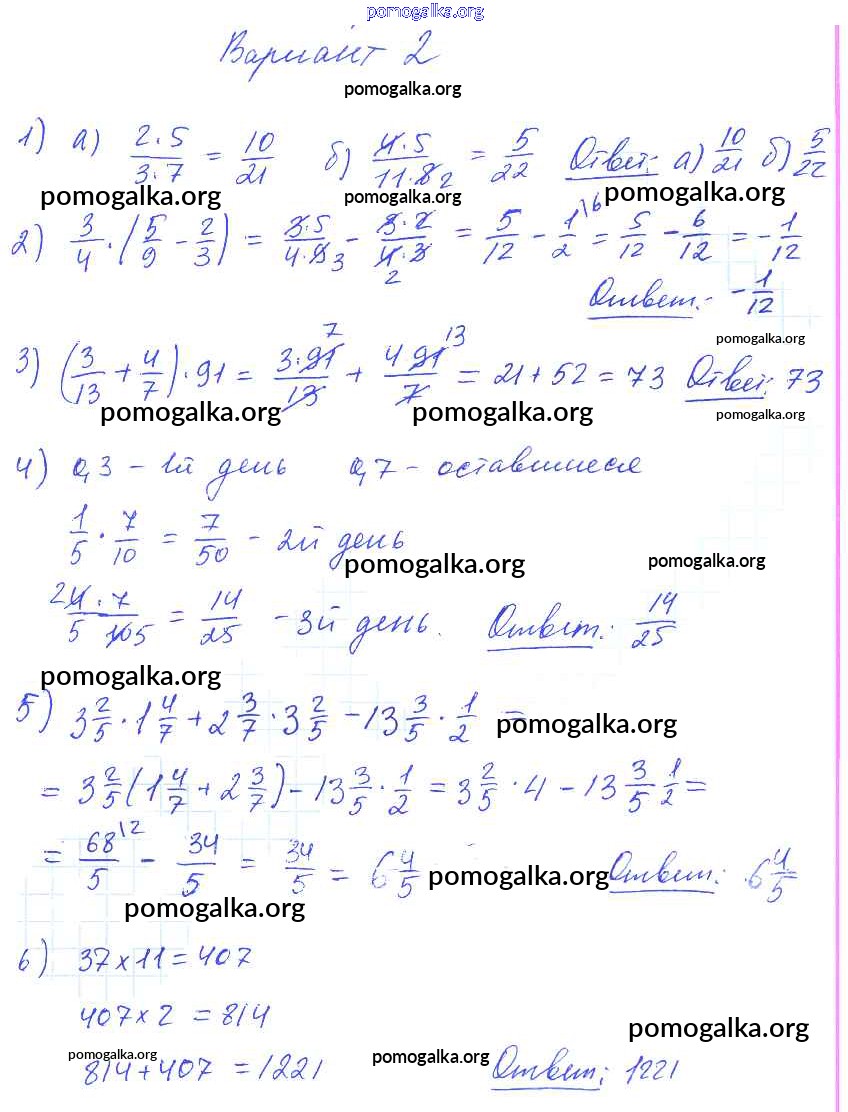 pomogalka.org
Вариант 2
pomogalka.org
1) а) 2·5/3·7 = 10/21 б) 4·5/11·8 2 = 5/22 Ответ: а) 10/21 б) 5/22
pomogalka.org pomogalka.org pomogalka.org
2) 3/4 · (5/9 - 2/3) = 3·5/4·9 3 - 3·2/4·3 2 = 5/12 - 1/2 \6 = 5/12 - 6/12 = -1/12
Ответ: -1/12
pomogalka.org
3) (3/13 + 4/7) · 91 = 3·91 7/13 + 4 91 13/7 = 21 + 52 = 73 Ответ: 73
pomogalka.org pomogalka.org pomogalka.org
4) 0,3 - 1й день 0,7 - оставшиеся
1/5 · 7/10 = 7/50 - 2й день
pomogalka.org pomogalka.org
2 4·7/5 10 5 = 14/25 - 3й день. Ответ: 14/25
pomogalka.org
5) 3 2/5 · 1 4/7 + 2 3/7 · 3 2/5 - 13 3/5 · 1/2 =
pomogalka.org
= 3 2/5 (1 4/7 + 2 3/7) - 13 3/5 · 1/2 = 3 2/5 · 4 - 13 3/5 1/2 =
= 68 \2/5 - 34/5 = 34/5 = 6 4/5 pomogalka.org Ответ: 6 4/5
pomogalka.org
6) 37 × 11 = 407
407 × 2 = 814
pomogalka.org
814 + 407 = 1221 Ответ: 1221
pomogalka.org pomogalka.org